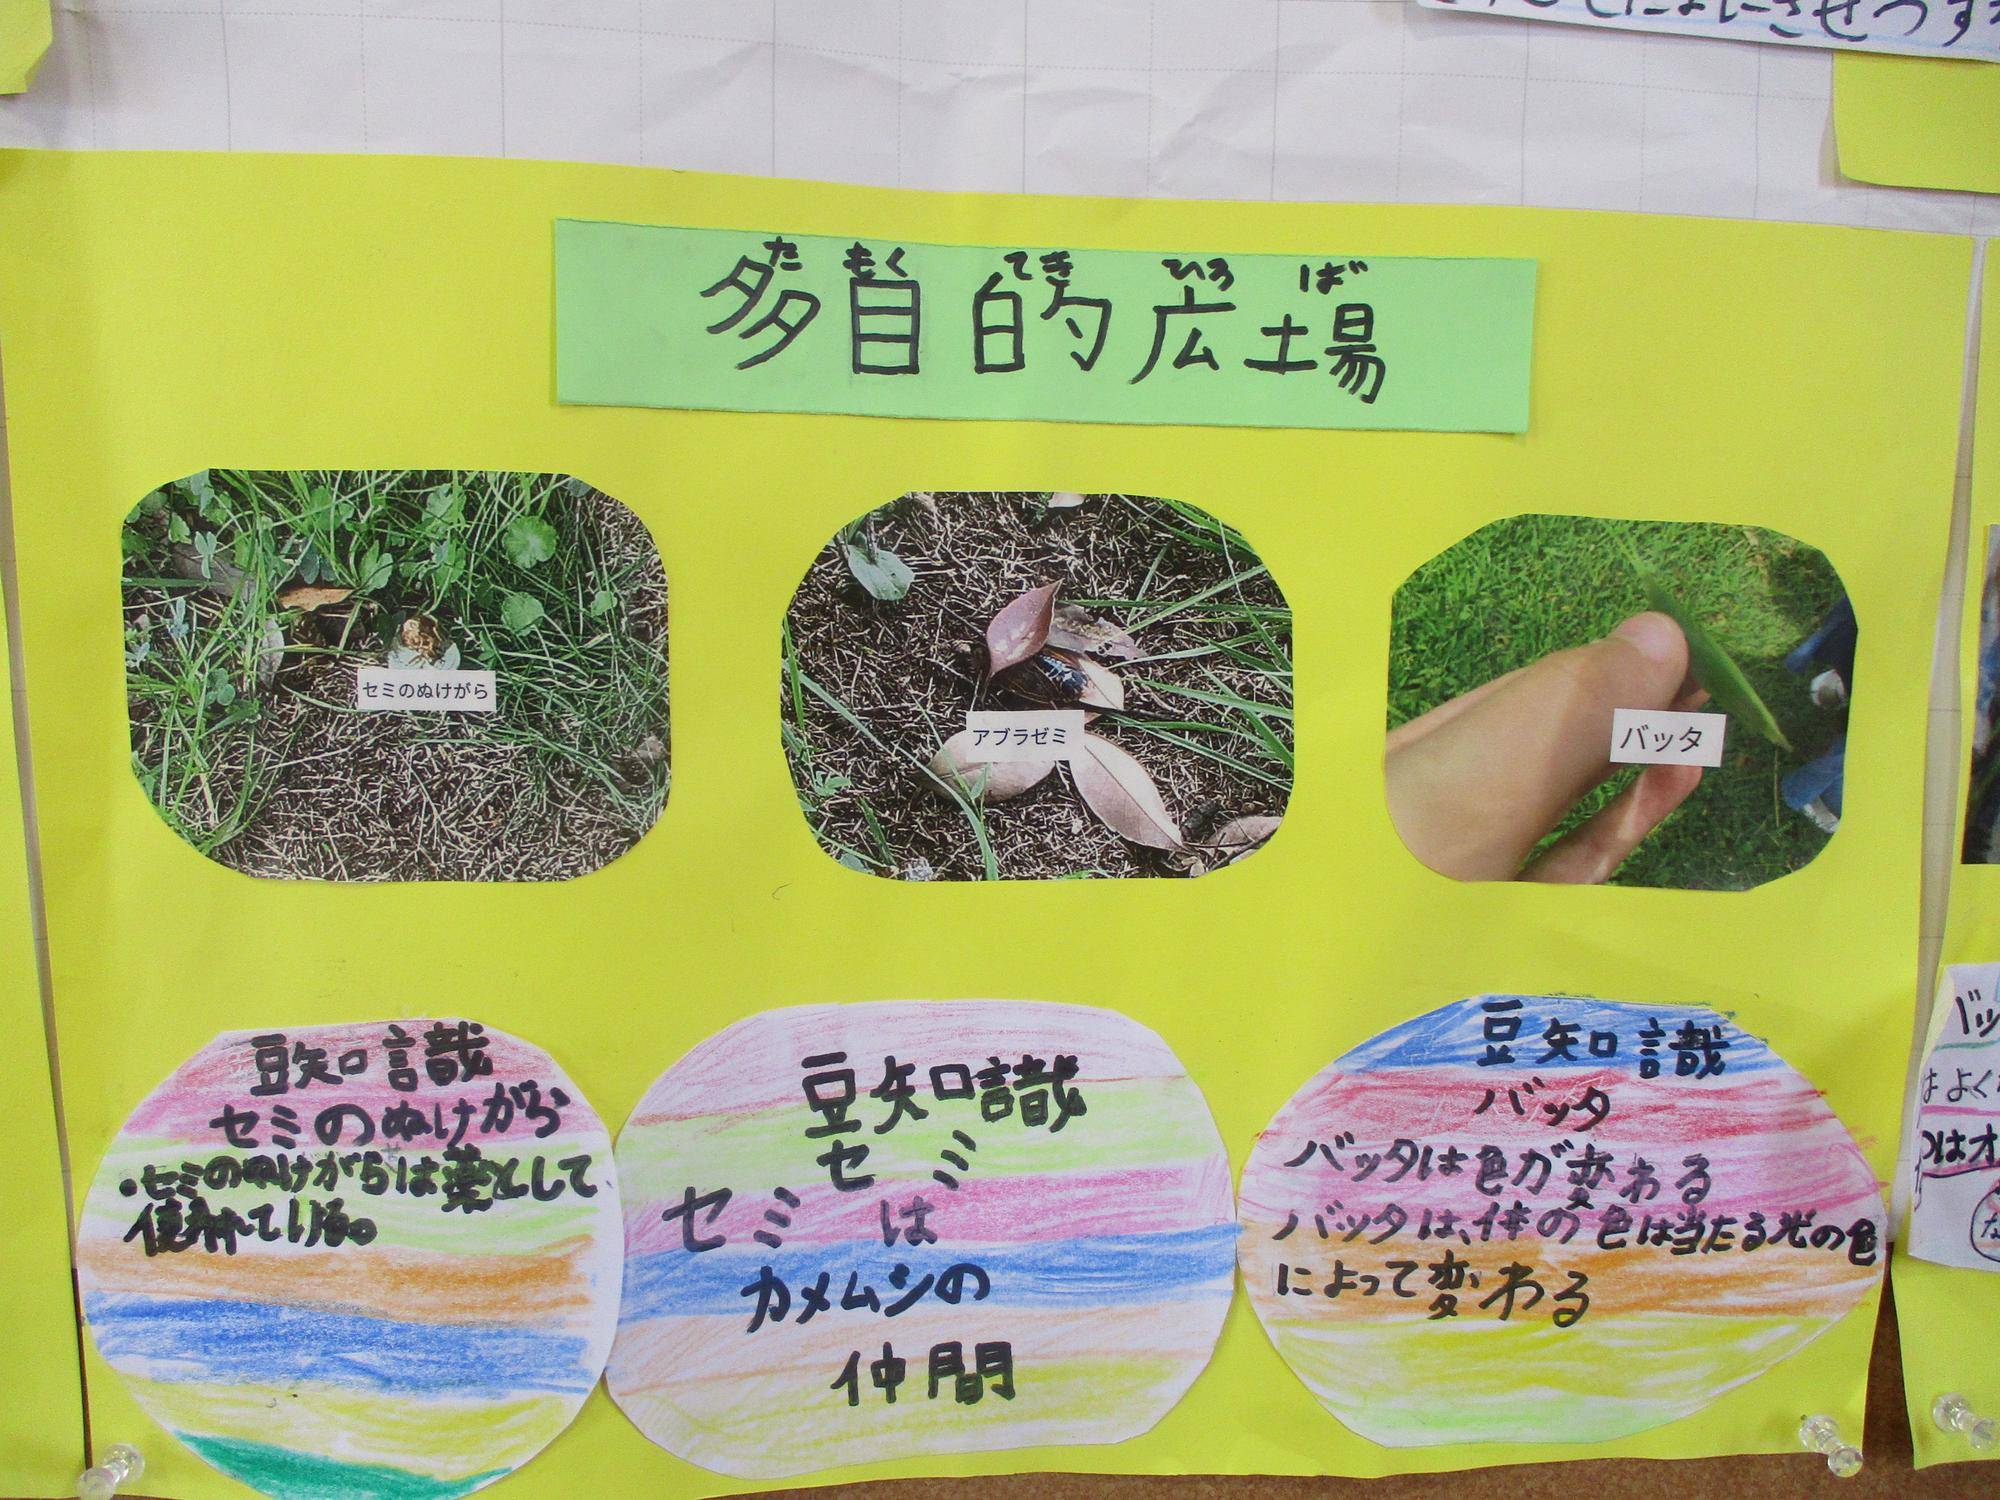 たもくてきひろば
多目的広場
セミのぬけがら
アブラゼミ
バッタ
豆知識
セミのぬけがら
・セミのぬけがらは薬として
使われている。
豆知識
セミ
セミは
カメムシの
仲間
豆知識
バッタ
バッタは色が変わる
バッタは、体の色は当たる光の色
によって変わる
バッ
はよく